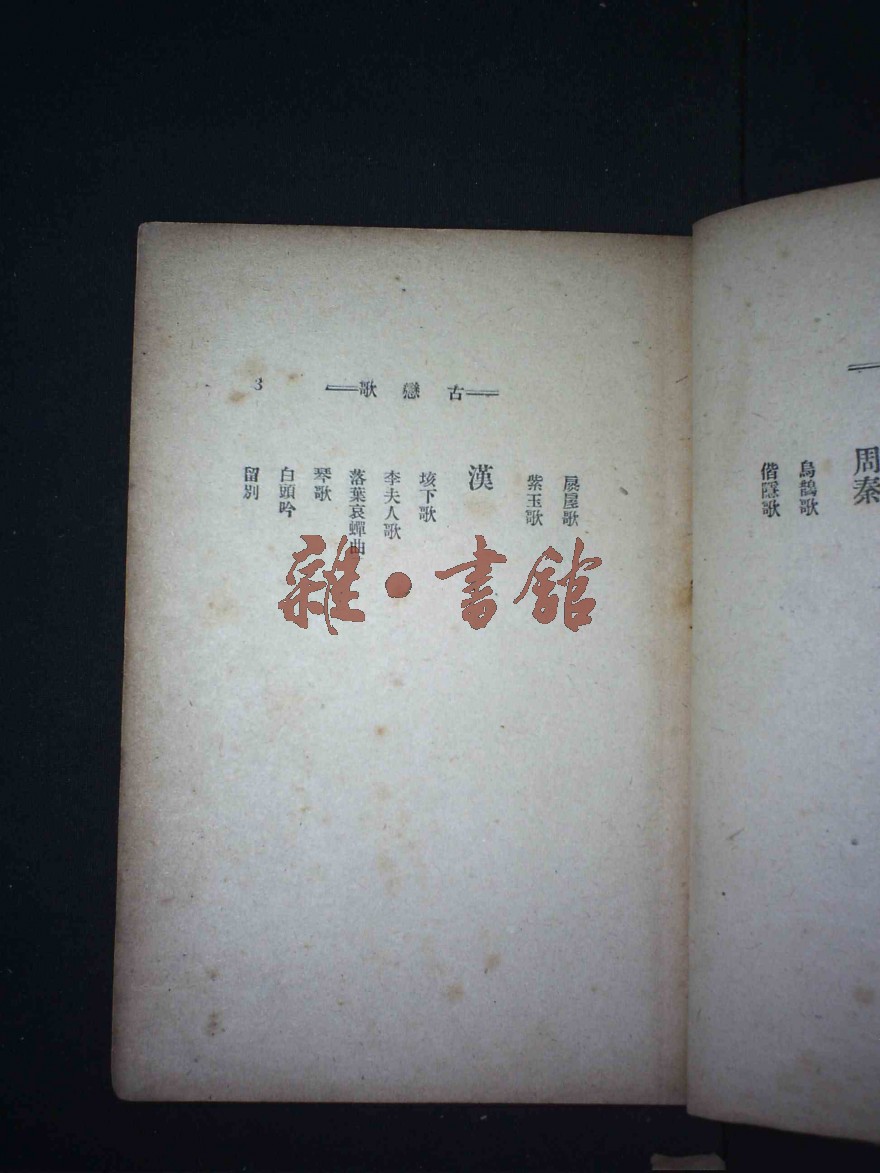 周秦
烏鵲歌
偕隱歌
古戀歌
3
扊扅歌
紫玉歌
漢
垓下歌
李夫人歌
落葉哀蟬曲
琴歌
白頭吟
留別
雜·書館